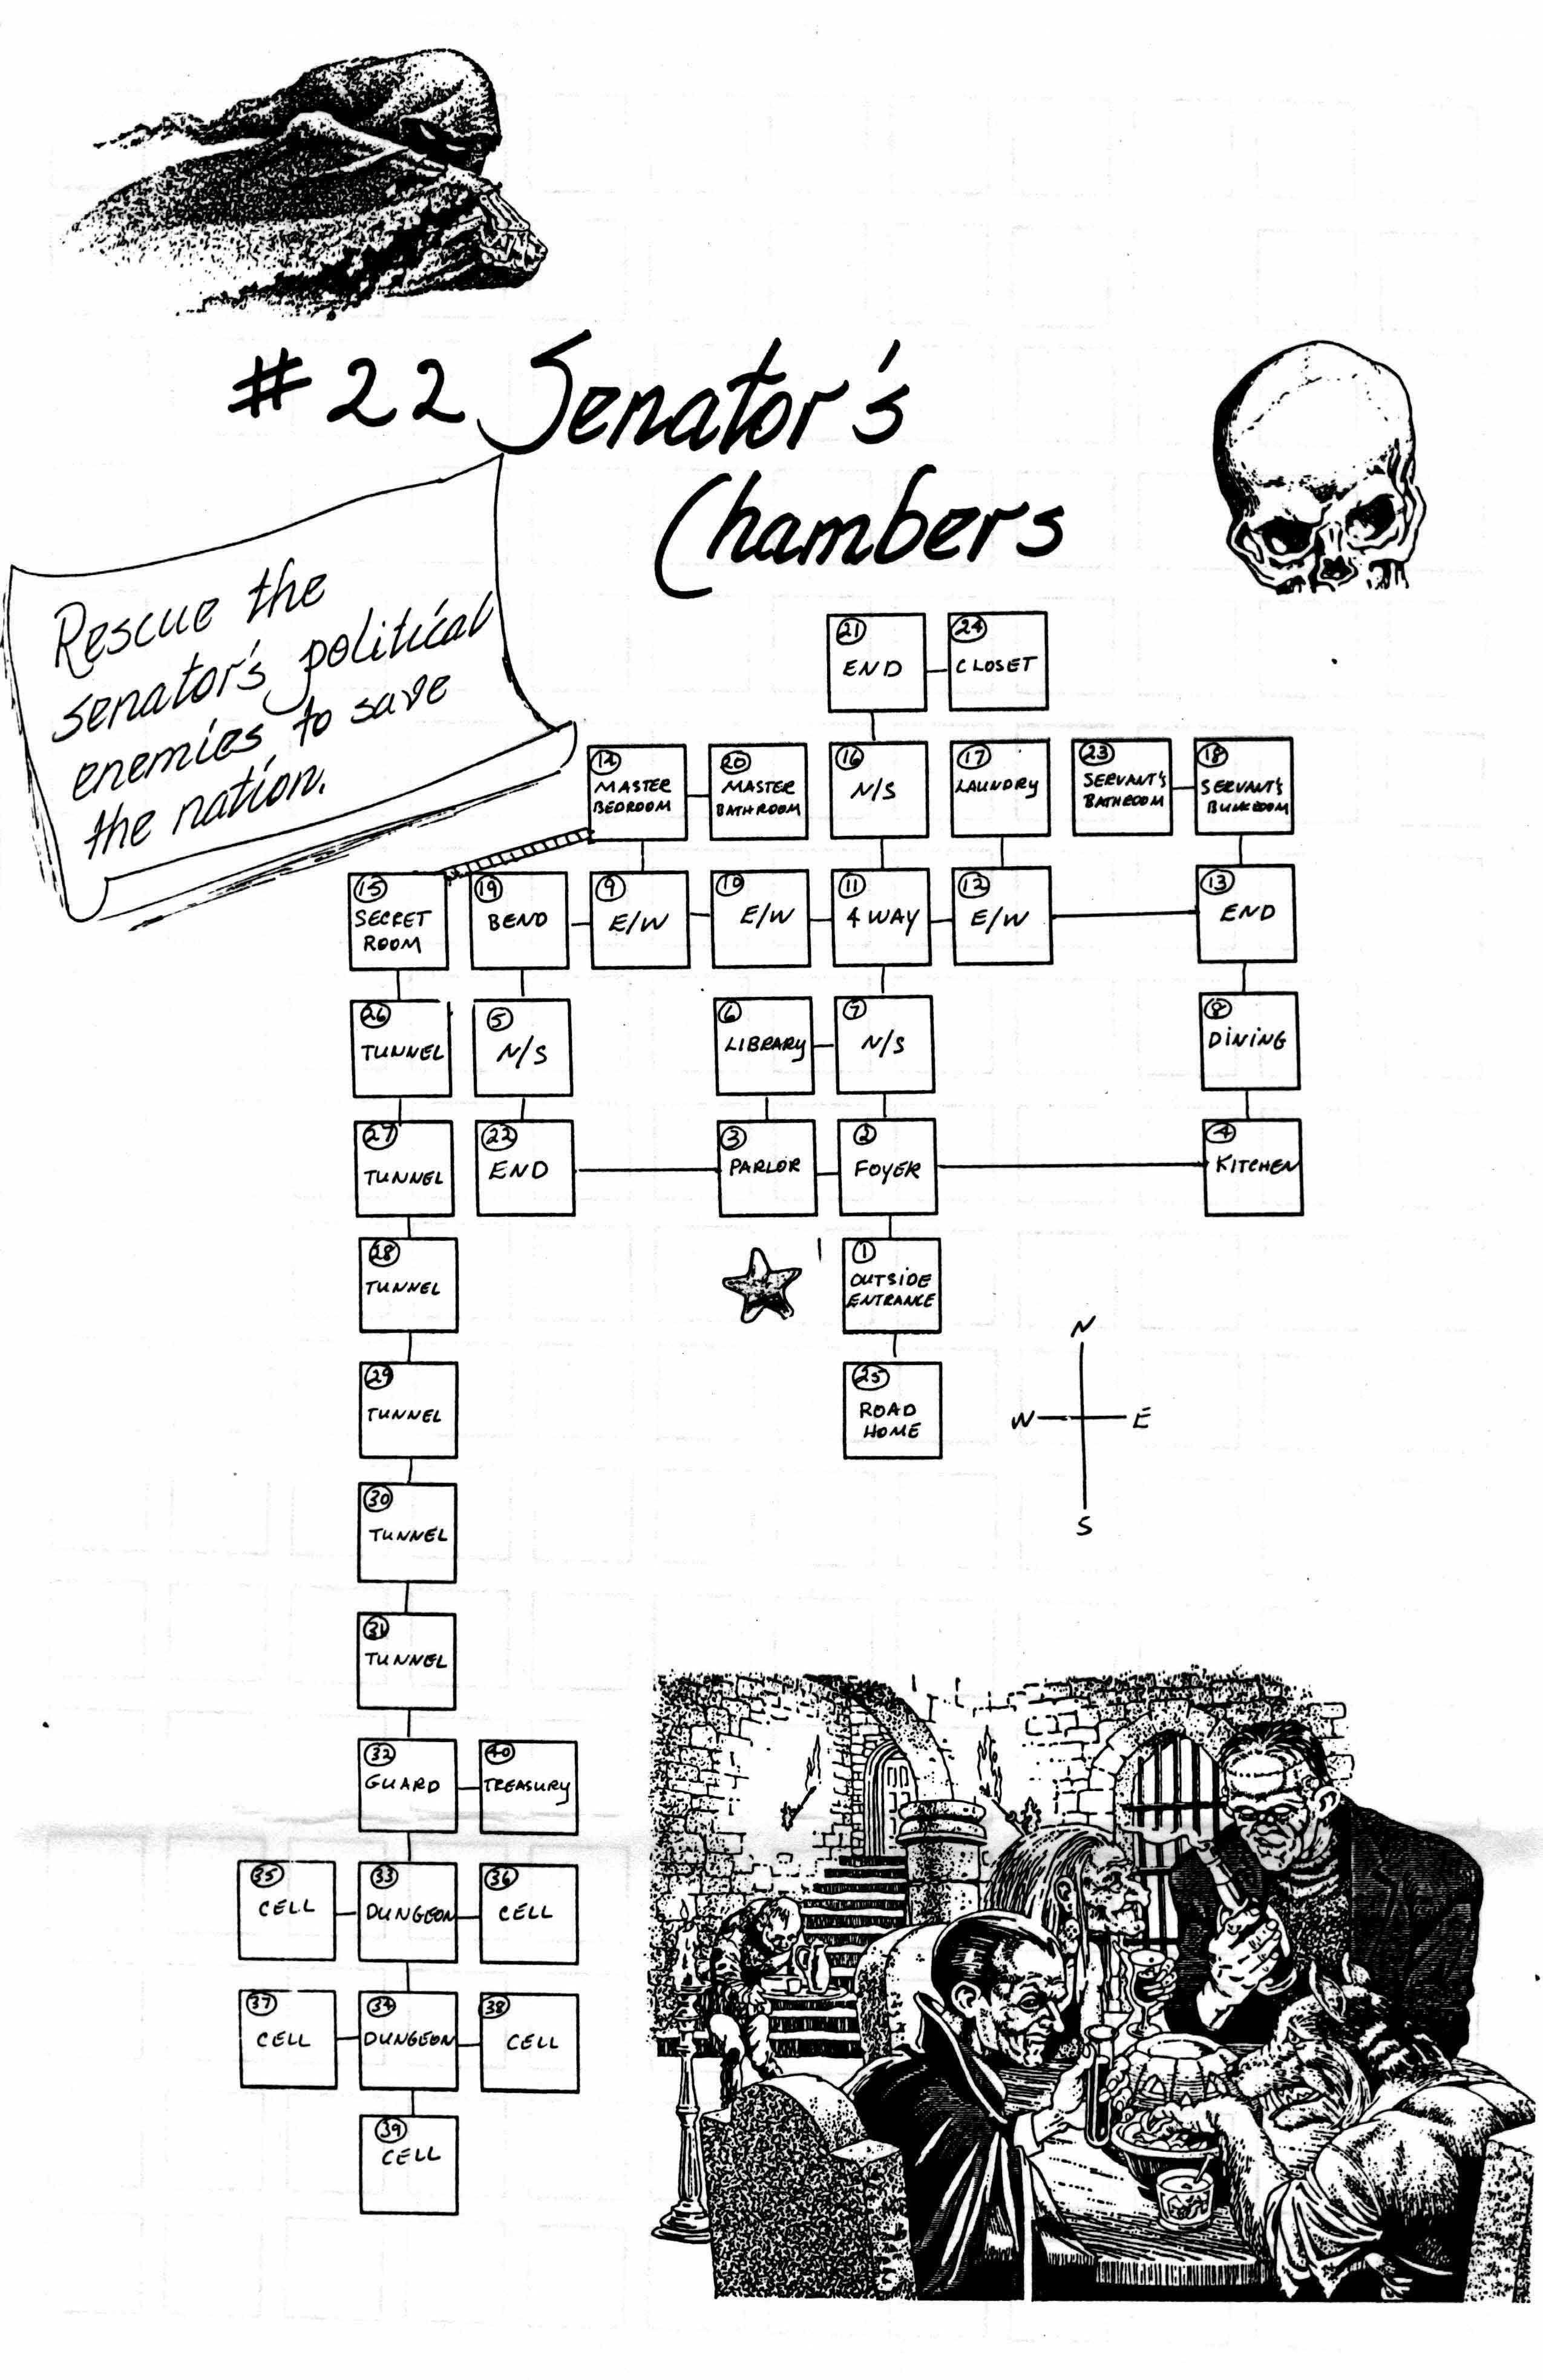 #22 Senator's
Chambers
Rescue the
senator's political
enemies, to save
the nation.
21
END
24
CLOSET
14
MASTER
BEDROOM
20
MASTER
BATHROOM
16
N/S
17
LAUNDRY
23
SERVANT'S
BATHROOM
18
SERVANT'S
BUNKROOM
15
SECRET
ROOM
19
BEND
9
E/W
10
E/W
11
4 WAY
12
E/W
13
END
26
TUNNEL
5
N/S
6
LIBRARY
7
N/S
8
DINING
27
TUNNEL
22
END
3
PARLOR
2
FOYER
4
KITCHEN
28
TUNNEL
1
OUTSIDE
ENTRANCE
29
TUNNEL
25
ROAD
HOME
N
W
E
S
30
TUNNEL
31
TUNNEL
32
GUARD
40
TREASURY
35
CELL
33
DUNGEON
36
CELL
37
CELL
34
DUNGEON
38
CELL
39
CELL